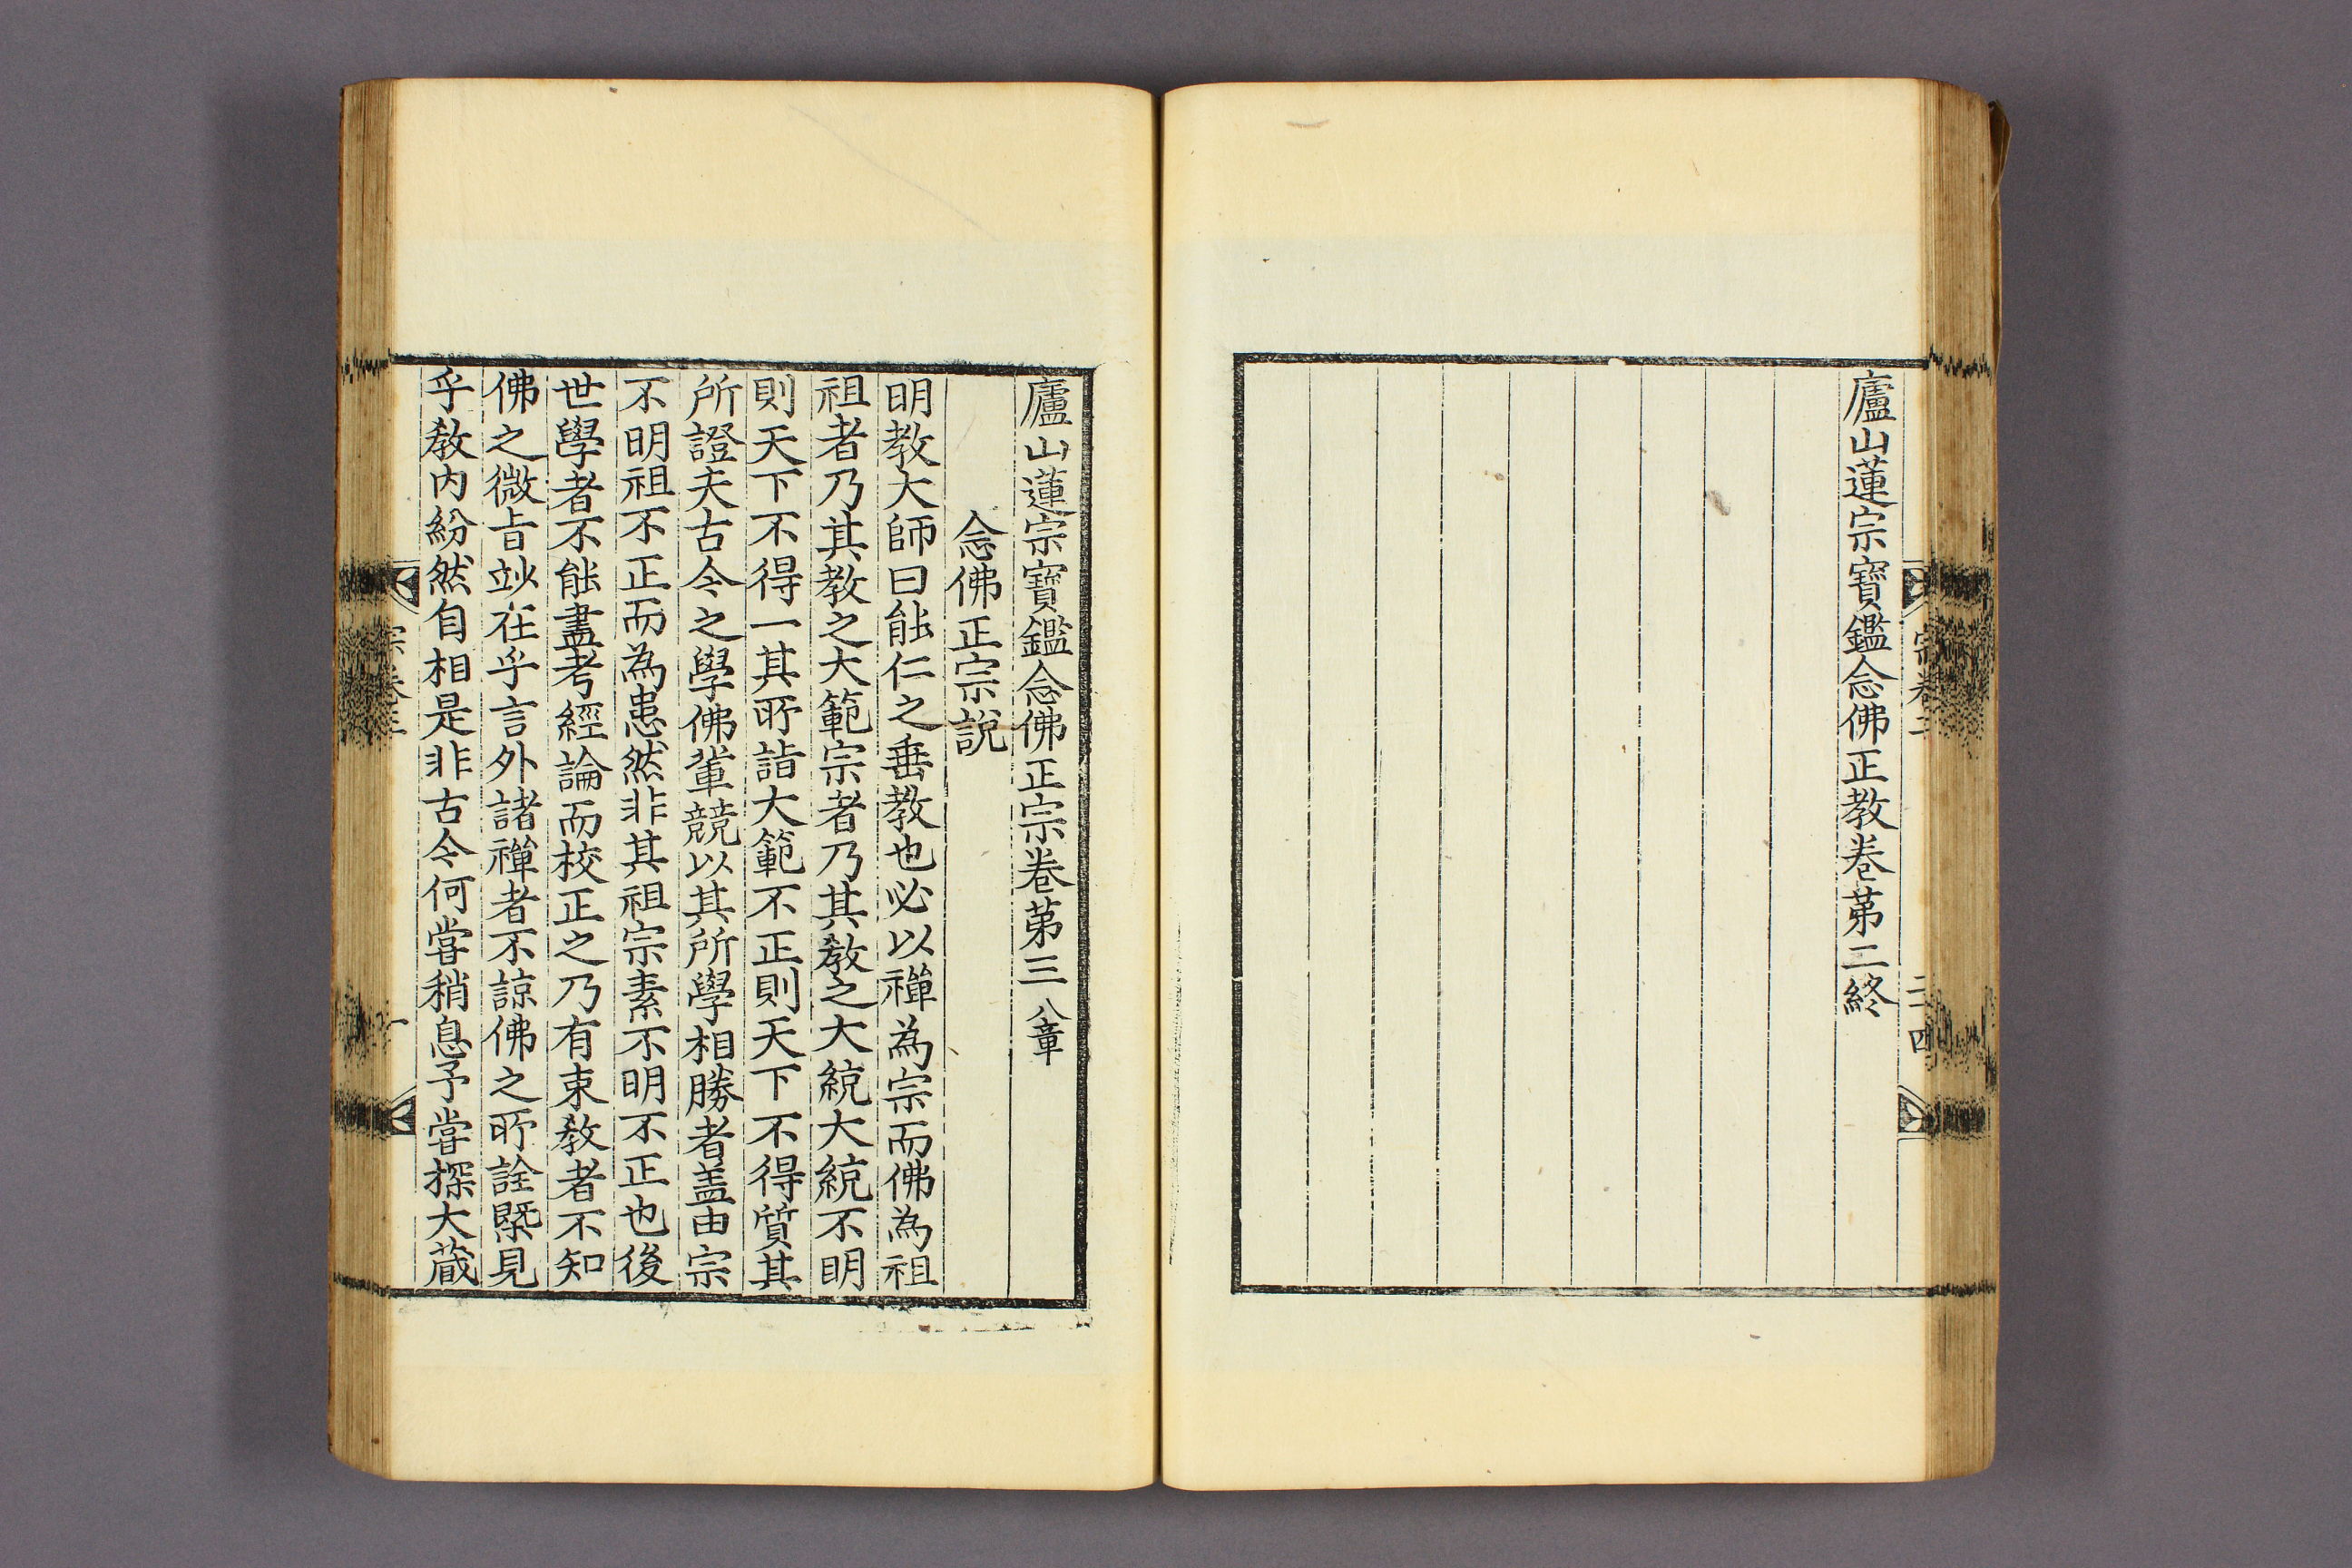 廬山蓮宗寶鑑念佛正教卷苐二終
廬山蓮宗寶鑑念佛正宗卷苐三 八章
念佛正宗說
明教大師曰能仁之垂教也必以禪為宗而佛為祖
祖者乃其教之大範宗者乃其教之大統大統不明
則天下不得一其所詣大範不正則天下不得質其
所證夫古今之學佛輩競以其所學相勝者盖由宗
不明祖不正而為患然非其祖宗素不明不正也後
世學者不能盡考經論而校正之乃有束教者不知
佛之微旨玅在乎言外諸禪者不諒佛之所詮槩見
乎教內紛然自相是非古今何嘗稍息予嘗探大蔵